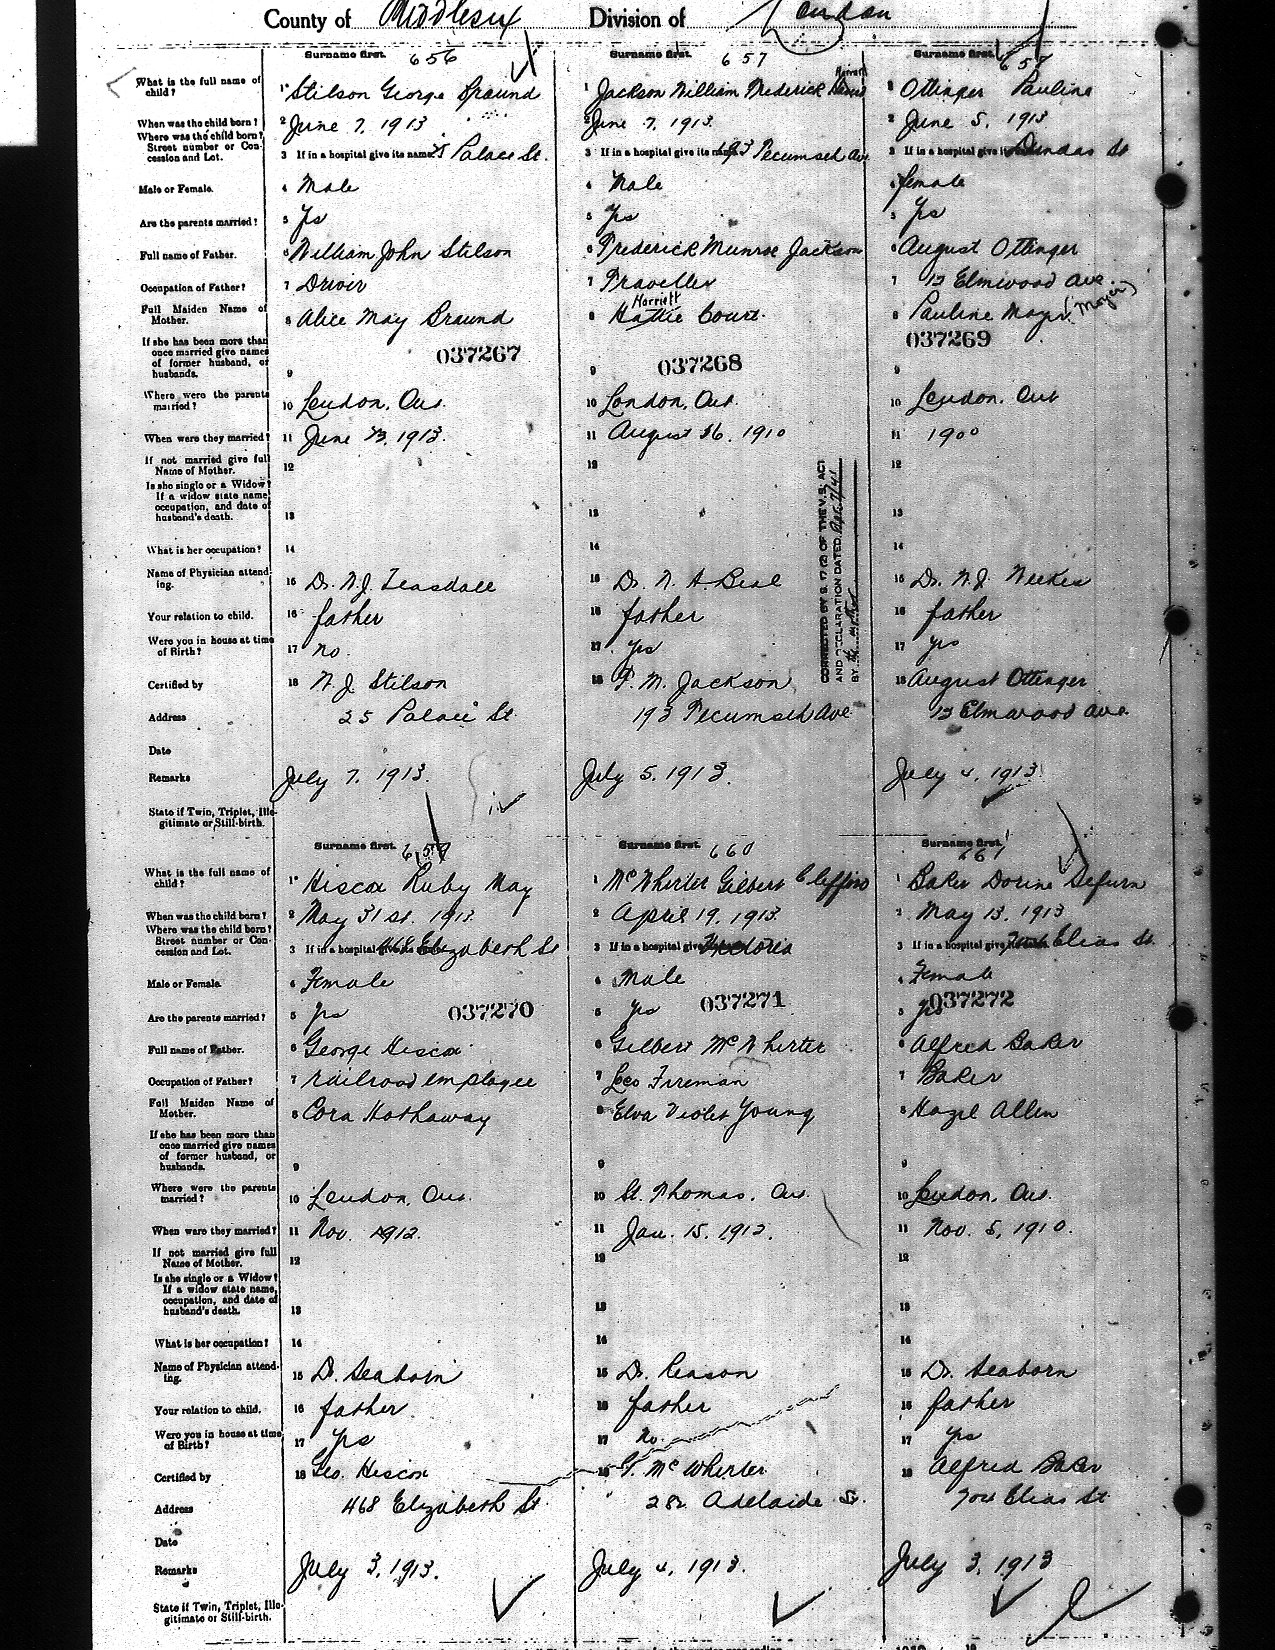 County of Middlesex Division of London
Surname first. 656 Surname first. 657 Surname first. 658
What is the full name of child? 1 Stilson George Braund 1 Jackson William Frederick 1 Ottinger Pauline
When was the child born? 2 June 7, 1913 2 June 7, 1913. 2 June 5, 1913
Where was the child born? Street number or Concession and Lot. 3 If in a hospital give its name 25 Palace St. 3 If in a hospital give its name 193 Tecumseh Ave 3 If in a hospital give its Dundas St
Male or Female. 4 Male 4 Male 4 female
Are the parents married? 5 Yes 5 Yes 5 Yes
Full name of Father. 6 William John Stilson 6 Frederick Munroe Jackson 6 August Ottinger
Occupation of Father? 7 Driver 7 Traveller 7 12 Elmwood ave
Full Maiden Name of Mother. 8 Alice May Braund 8 Harriett Hattie Court. 8 Pauline Mayer (Moyer)
If she has been more than once married give names of former husband, or husbands. 9 037267 9 037268 9 037269
Where were the parents married? 10 London, Ont. 10 London, Ont. 10 London, Ont
When were they married? 11 June 1913. 11 August 26, 1910 11 1900
If not married give full Name of Mother. 12 12 12
Is she single or a Widow? If a widow state name, occupation, and date of husband's death. 13 13 13
What is her occupation? 14 14 14
CORRECTED BY S. 17 (2) OF THE V.S. ACT
AND DECLARATION DATED
BY
Name of Physician attending. 15 Dr. W.J. Teasdall 15 Dr. W. A. Beal 15 Dr. W.J. Weekes
Your relation to child. 16 father 16 father 16 father
Were you in house at time of Birth? 17 no. 17 yes 17 yes
Certified by 18 W. J. Stilson 18 F. M. Jackson 18 August Ottinger
Address 25 Palace St. 193 Tecumseh Ave 12 Elmwood Ave.
Date
Remarks July 7, 1913. July 5, 1913. July 4, 1913
State if Twin, Triplet, Illegitimate or Still-birth.
Surname first. 659 Surname first. 660 Surname first. 661
What is the full name of child? 1 Hiscox Ruby May 1 McWherter Gilbert Clifford 1 Baker Dorine
When was the child born? 2 May 31st, 1913 2 April 19, 1913. 2 May 13, 1913
Where was the child born? Street number or Concession and Lot. 3 If in a hospital 468 Elizabeth St 3 If in a hospital give Victoria 3 If in a hospital give Elias St.
Male or Female. 4 Female 4 Male 4 Female
Are the parents married? 5 Yes 037270 5 Yes 037271 5 Yes 037272
Full name of Father. 6 George Hiscox 6 Gilbert McWherter 6 Alfred Baker
Occupation of Father? 7 railroad employee 7 Loco Fireman 7 Baker
Full Maiden Name of Mother. 8 Cora Hathaway 8 Elva Violet Young 8 Hazel Allen
If she has been more than once married give names of former husband, or husbands. 9 9 9
Where were the parents married? 10 London, Ont. 10 St. Thomas, Ont. 10 London, Ont.
When were they married? 11 Nov. 1912. 11 Jan. 15, 1912. 11 Nov. 5, 1910.
If not married give full Name of Mother. 12 12 12
Is she single or a Widow? If a widow state name, occupation, and date of husband's death. 13 13 13
What is her occupation? 14 14 14
Name of Physician attending. 15 Dr. Seaborn 15 Dr. Reason 15 Dr. Seaborn
Your relation to child. 16 father 16 father 16 father
Were you in house at time of Birth? 17 yes 17 no. 17 yes
Certified by 18 Geo. Hiscox 18 G. McWherter 18 Alfred Baker
Address 468 Elizabeth St. 282 Adelaide St. 704 Elias St
Date
Remarks July 3, 1913. July 4, 1913. July 3, 1913
State if Twin, Triplet, Illegitimate or Still-birth.